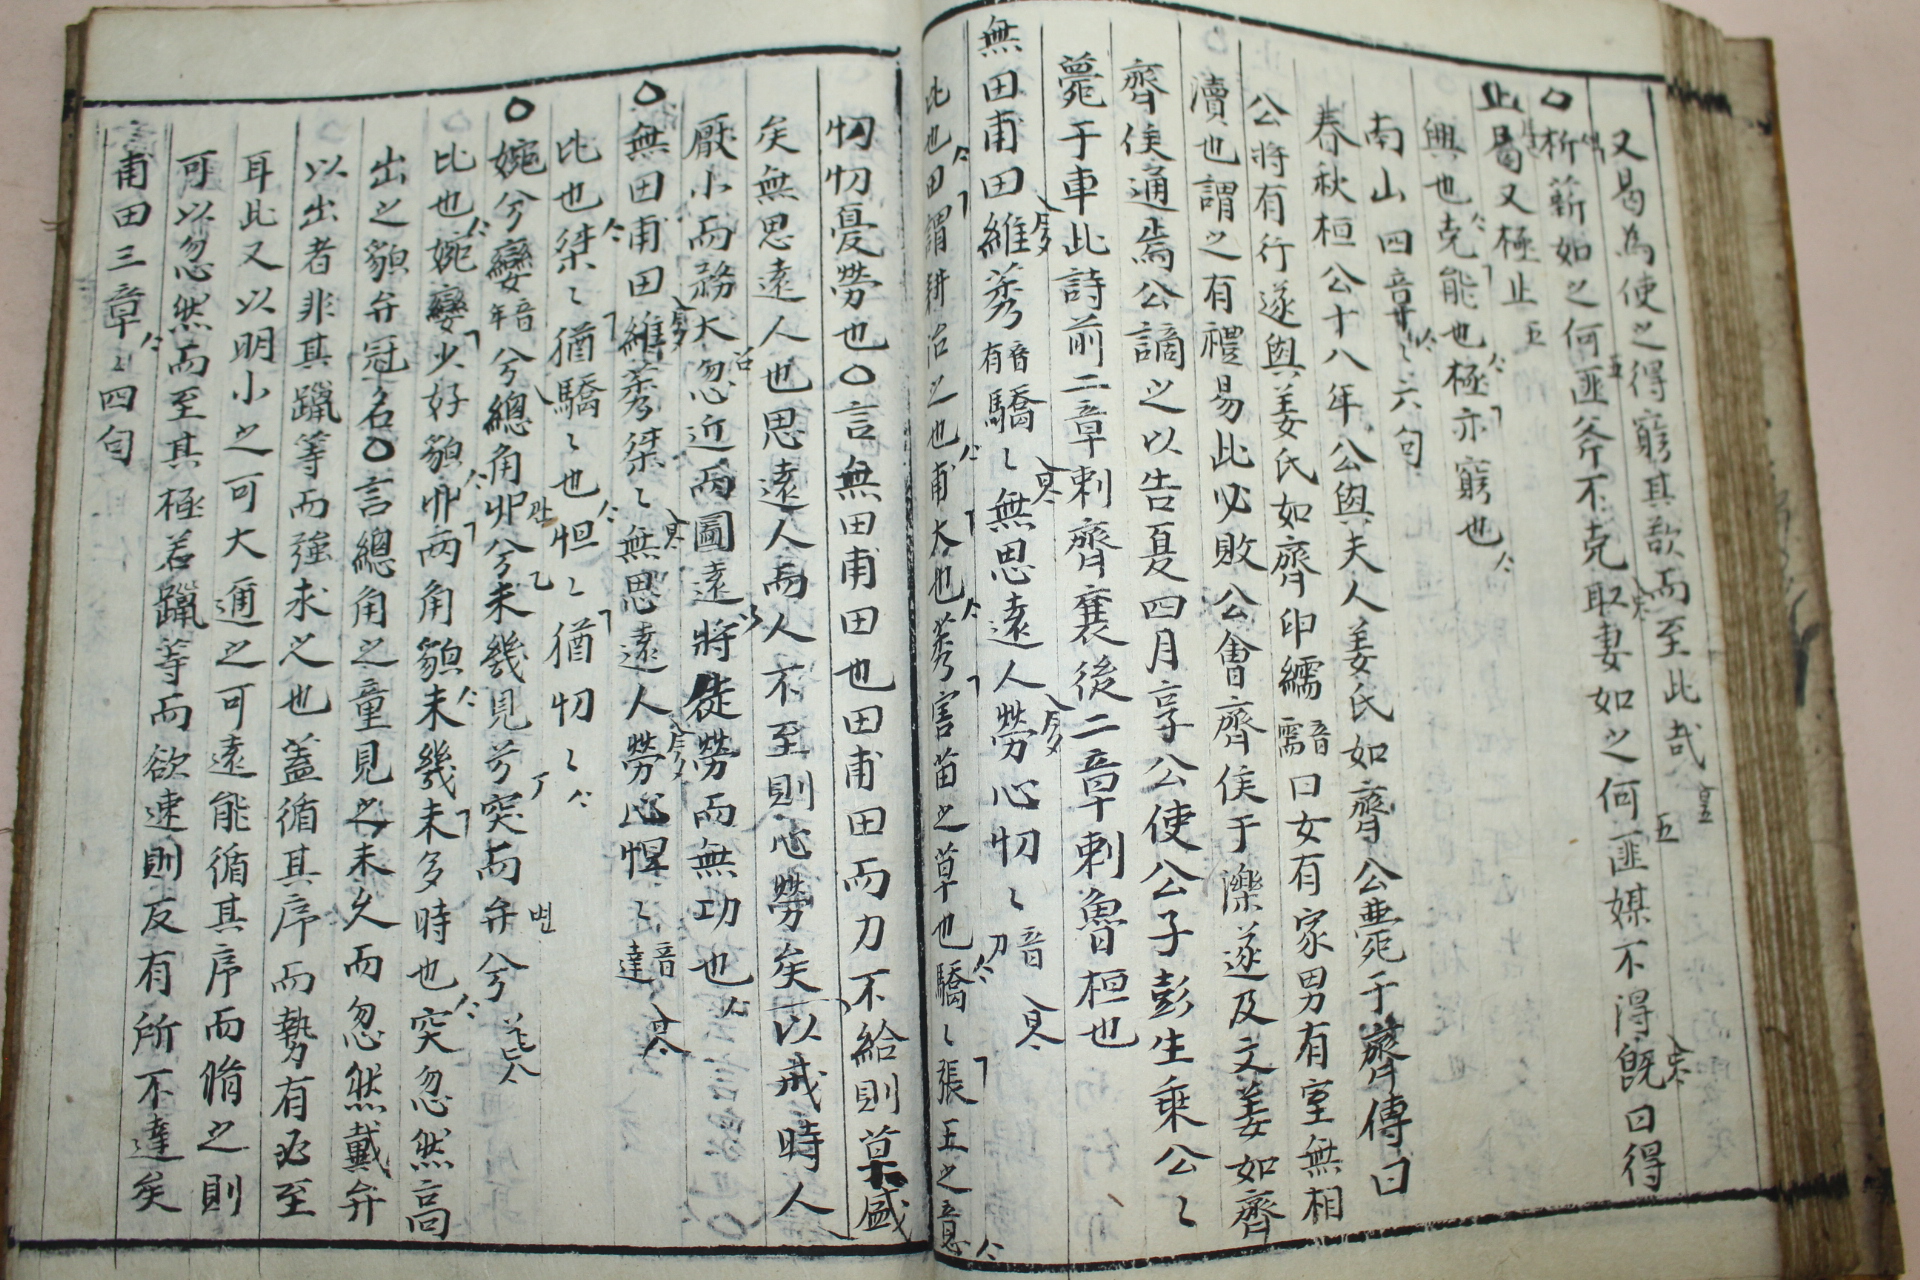 又曷爲使之得窮其欲而至此哉
○析薪如之何匪斧不克取妻如之何匪媒不得旣曰得
止曷又極止
興也克能也極亦窮也
南山四章章六句
春秋桓公十八年公與夫人姜氏如齊公薨于齊傳曰
公將有行遂與姜氏如齊申繻音曰女有家男有室無相
瀆也謂之有禮易此必敗公會齊侯于濼遂及文姜如齊
齊侯通焉公謫之以告夏四月享公使公子彭生乘公〻
薨于車此詩前二章刺齊襄後二章刺魯桓也
無田甫田維莠音有驕〻無思遠人勞心忉〻音刀
比也田謂耕治之也甫大也莠害苗之草也驕〻張王之意
忉忉憂勞也○言無田甫田也田甫田而力不給則草盛
矣無思遠人也思遠人而人不至則心勞矣以戒時人
厭小而務大忽近而圖遠將徒勞而無功也
○無田甫田維莠桀〻無思遠人勞心怛〻音達
比也桀〻猶驕〻也怛〻猶忉〻
○婉兮孌音兮總角丱관兮未幾見兮突而弁변兮
比也婉孌少好貌丱兩角貌未幾未多時也突忽然高
出之貌弁冠名○言總角之童見之未久而忽然戴弁
以出者非其躐等而強求之也蓋循其序而勢有必至
耳此又以明小之可大邇之可遠能循其序而脩之則
可以忽然而至其極若躐等而欲速則反有所不達矣
甫田三章〻四句